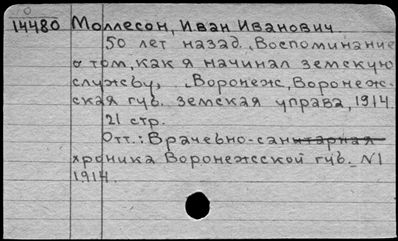 14480 Моллесон, Иван Иванович
50 лет назад. Воспоминание
о том, как я начинал земскую
службу, Воронеж, Воронеж-
ская губ. земская управа, 1914.
21 стр.
Отт.: Врачебно-санитарная
хроника Воронежсской губ. №1
1914.